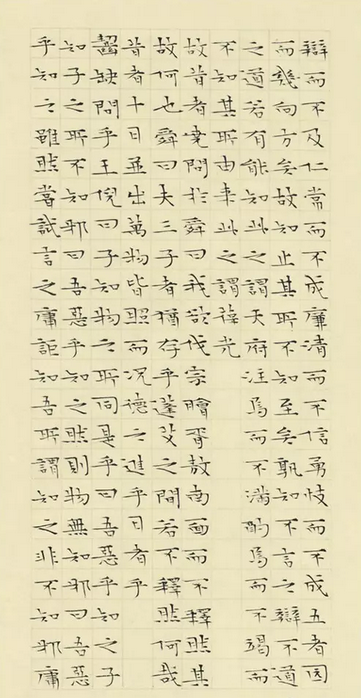 辯而不及仁常而不成廉清而不信勇忮而不成五者因
而幾向方矣故知止其所不知至矣孰知不言之辯不道
之道若有能知此之謂天府注焉而不滿酌焉而不竭而
不知其所由來此之謂葆光
故昔者堯問於舜曰我欲伐宗膾胥敖南面而不釋然其
故何也舜曰夫三子者猶存乎蓬艾之間若不釋然何哉
昔者十日並出萬物皆照而況德之進乎日者乎
齧缺問乎王倪曰子知物之所同是乎曰吾惡乎知之子
知子之所不知邪曰吾惡乎知之然則物無知邪曰吾惡
乎知之雖然嘗試言之庸詎知吾所謂知之非不知邪庸